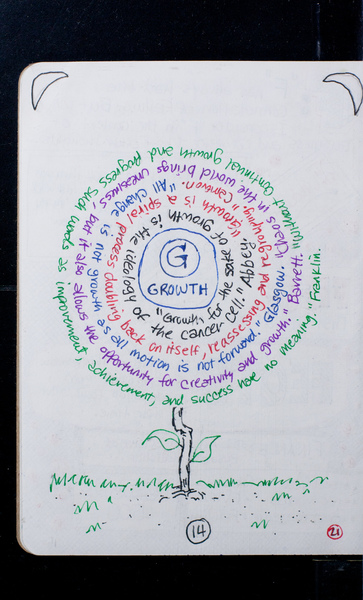 G
GROWTH
"Growth for the sake of growth is the ideology of the cancer cell." Abbey.
"Growth is a spiral process, doubling back on itself, reassessing and regrouping." Cameron.
"All change is not growth as all motion is not forward." Glasgow.
"Chaos in the world brings uneasiness, but it also allows the opportunity for creativity and growth." Barrett.
"Without continual growth and progress such words as improvement, achievement, and success have no meaning." Franklin.
14
21